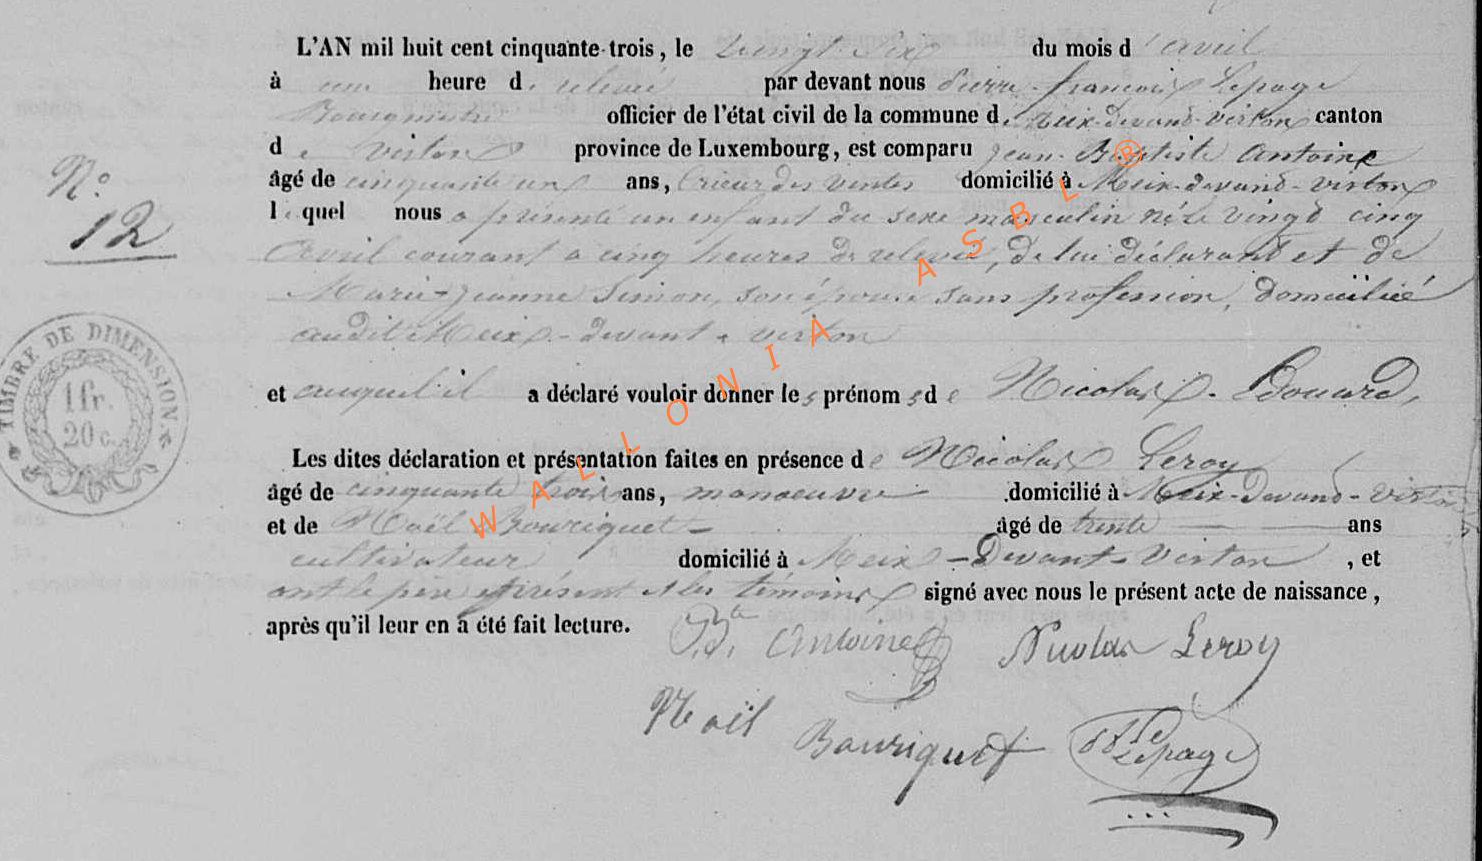 L'AN mil huit cent cinquante-trois, le vingt six du mois d'avril
à une heure de relevée par devant nous Pierre françois Lepage
Bourgmestre officier de l'état civil de la commune de Meix-devant-virton canton
de virton province de Luxembourg, est comparu Jean-Baptiste Antoine
âgé de cinquante un ans, Crieur des ventes domicilié à Meix-devant-virton
N° 12
lequel nous a présenté un enfant du sexe masculin né le vingt cinq
avril courant a cinq heures de relevée, de lui déclarant et de
Marie-jeanne Simon, son épouse sans profession, domiciliée
audit Meix-devant-virton
et auquel il a déclaré vouloir donner les prénoms de Nicolas-Edouard,
Les dites déclaration et présentation faites en présence de Nicolas Leroy
âgé de cinquante trois ans, manoeuvre domicilié à Meix-devant-virton
et de Noël Bouriquet âgé de trente ans
cultivateur domicilié à Meix-Devant-Virton, et
ont le père et les témoins signé avec nous le présent acte de naissance,
après qu'il leur en a été fait lecture.
TIMBRE DE DIMENSION.
1 fr.
20 c.
J.Bte Antoine Nicolas Leroy
Noël Bouriquet Lepage
WALLONIA ASBL ®